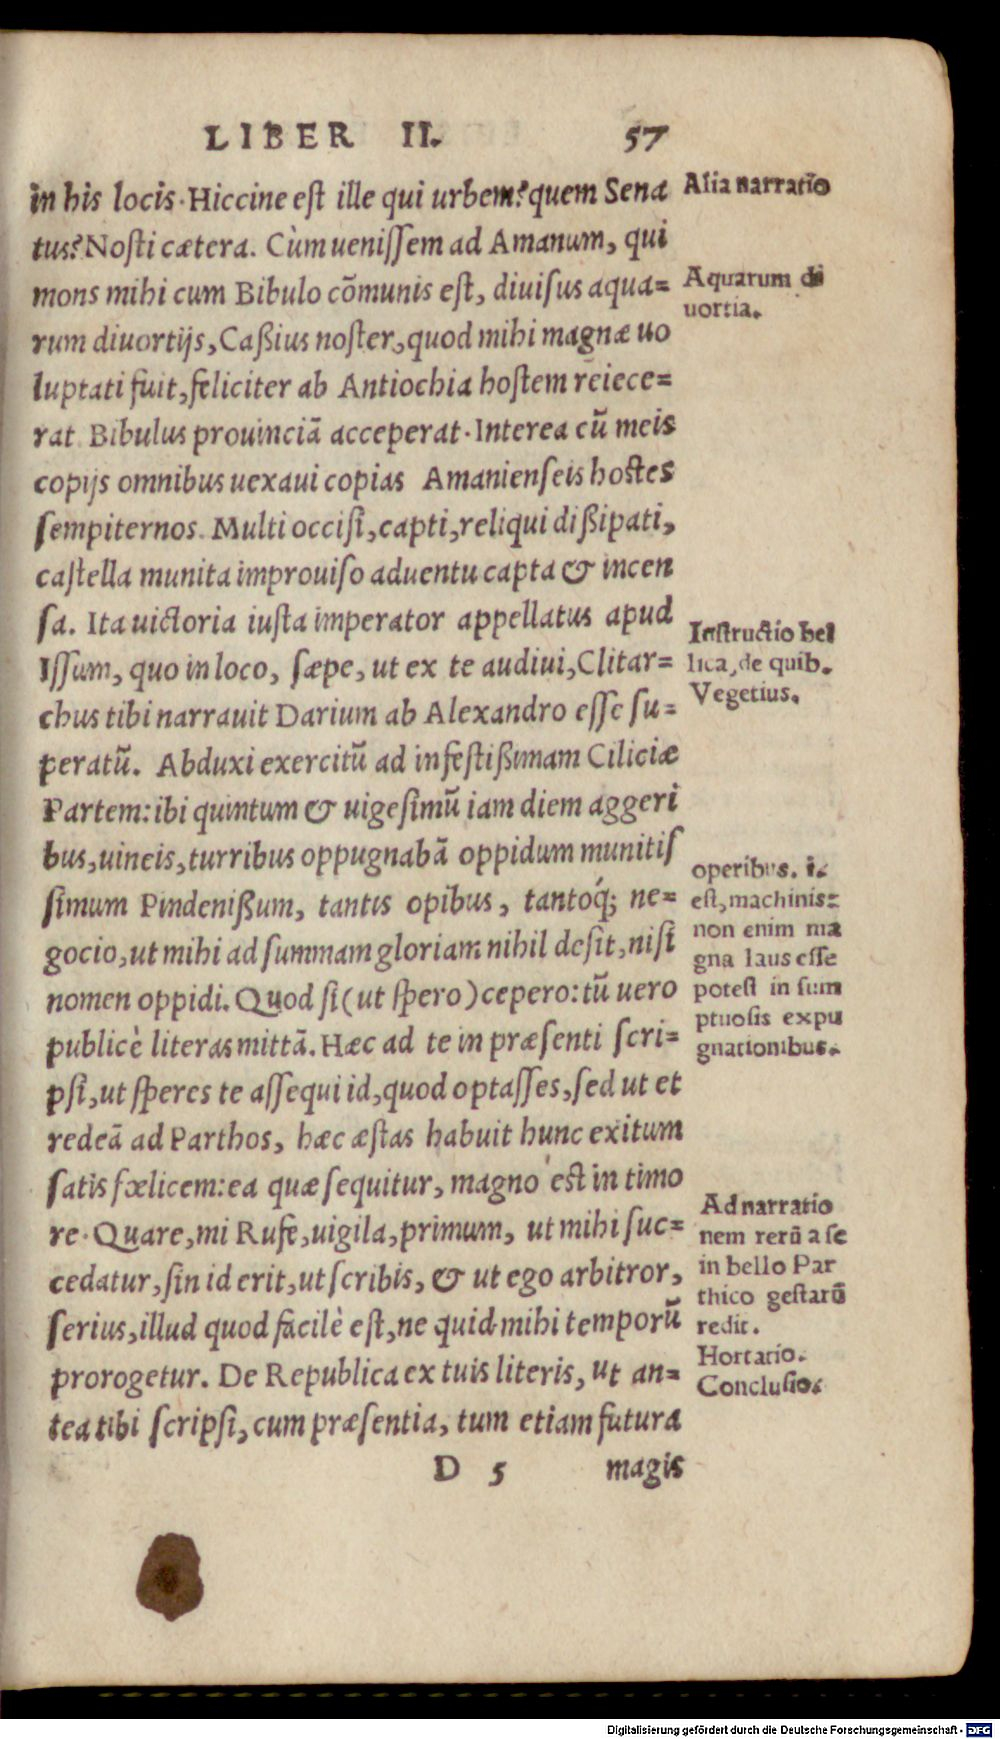 LIBER II. 57
in his locis. Hiccine est ille qui urbem? quem Sena
tus? Nosti cætera. Cùm uenissem ad Amanum, qui
mons mihi cum Bibulo cõmunis est, diuisus aqua=
rum diuortijs, Caßius noster, quod mihi magnæ uo
luptati fuit, feliciter ab Antiochia hostem reiece=
rat Bibulus prouinciã acceperat. Interea cũ meis
copijs omnibus uexaui copias Amanienseis hostes
sempiternos. Multi occisi, capti, reliqui dißipati,
castella munita improuiso aduentu capta & incen
sa. Ita uictoria iusta imperator appellatus apud
Issum, quo in loco, sæpe, ut ex te audiui, Clitar=
chus tibi narrauit Darium ab Alexandro esse su=
peratũ. Abduxi exercitũ ad infestißimam Ciliciæ
Partem: ibi quintum & uigesimũ iam diem aggeri
bus, uineis, turribus oppugnabã oppidum munitis
simum Pindenißum, tantis opibus, tantoq́; ne=
gocio, ut mihi ad summam gloriam nihil desit, nisi
nomen oppidi. Quod si (ut spero) cepero: tũ uero
publicè literas mittã. Hæc ad te in præsenti scri=
psi, ut speres te assequi id, quod optasses, sed ut et
redeã ad Parthos, hæc æstas habuit hunc exitum
satis fœlicem: ea quæ sequitur, magno est in timo
re. Quare, mi Rufe, uigila, primum, ut mihi suc=
cedatur, sin id erit, ut scribis, & ut ego arbitror,
serius, illud quod facilè est, ne quid mihi temporũ
prorogetur. De Republica ex tuis literis, ut an=
tea tibi scripsi, cum præsentia, tum etiam futura
D 5 magis
Alia narratĩo
Aquarum di
uortia.
Instructio bel
lica, de quib.
Vegetius.
operibus. i.
est, machinis:
non enim ma
gna laus esse
potest in sum
ptuosis expu
gnationibus.
Ad narratio
nem rerũ a se
in bello Par
thico gestarũ
redit.
Hortatio.
Conclusio.
Digitalisierung gefördert durch die Deutsche Forschungsgemeinschaft - DFG